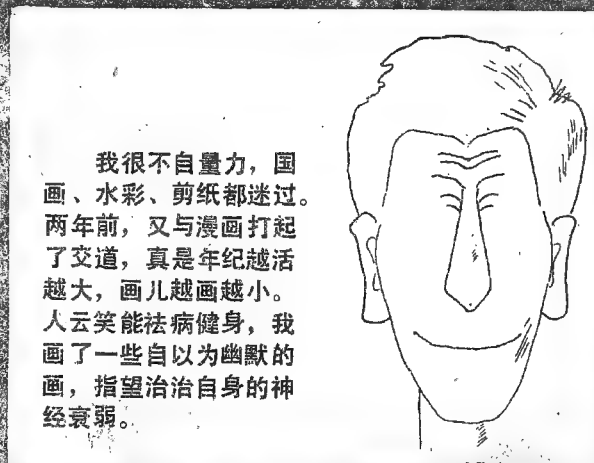 我很不自量力，国
画、水彩、剪纸都迷过。
两年前，又与漫画打起
了交道，真是年纪越活
越大，画儿越画越小。
人云笑能祛病健身，我
画了一些自以为幽默的
画，指望治治自身的神
经衰弱。